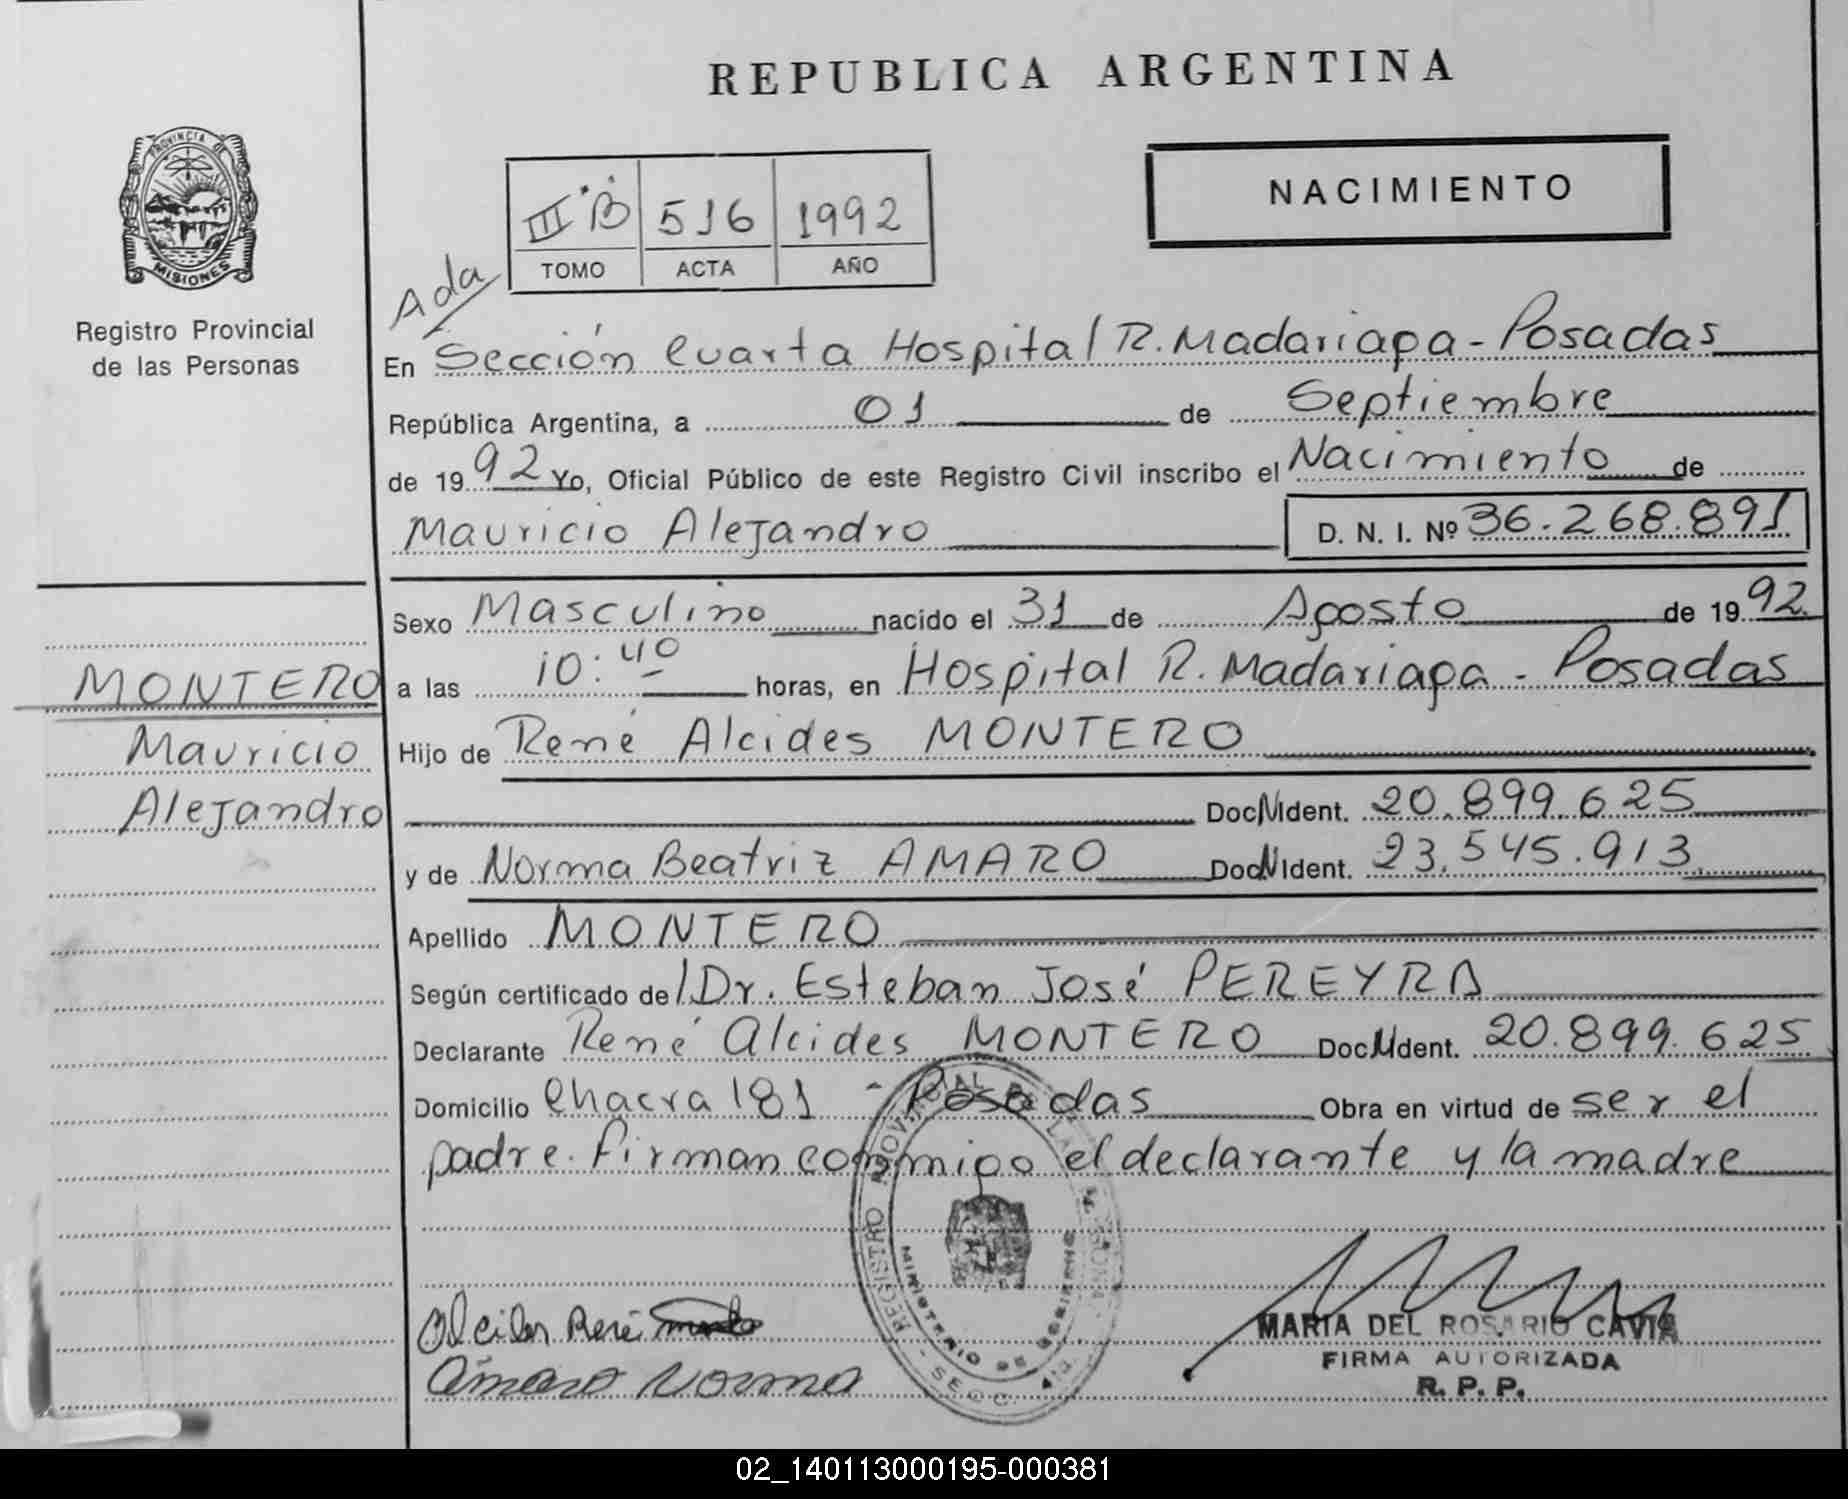 REPUBLICA ARGENTINA
PROVINCIA DE
MISIONES
Registro Provincial
de las Personas
NACIMIENTO
III B 516 1992
TOMO ACTA AÑO
Ada
En Sección Cuarta Hospital R. Madariaga - Posadas
República Argentina, a 01 de Septiembre
de 1992 Yo, Oficial Público de este Registro Civil inscribo el Nacimiento de
Mauricio Alejandro D. N. I. Nº 36.268.891
Sexo Masculino nacido el 31 de Agosto de 1992
MONTERO
a las 10:40 horas, en Hospital R. Madariaga - Posadas
Mauricio
Hijo de René Alcides MONTERO
Alejandro
Doc. Ident. 20.899.625
y de Norma Beatriz AMARO Doc. Ident. 23.545.913
Apellido MONTERO
Según certificado de Dr. Esteban José PEREYRA
Declarante René Alcides MONTERO Doc. Ident. 20.899.625
Domicilio Chacra 181 - Posadas Obra en virtud de ser el
padre. Firman conmigo el declarante y la madre
REGISTRO PROVINCIAL DE LAS PERSONAS
MINISTERIO DE GOBIERNO
Alcides René
Amaro Norma
MARIA DEL ROSARIO CAVIA
FIRMA AUTORIZADA
R. P. P.
02_140113000195-000381